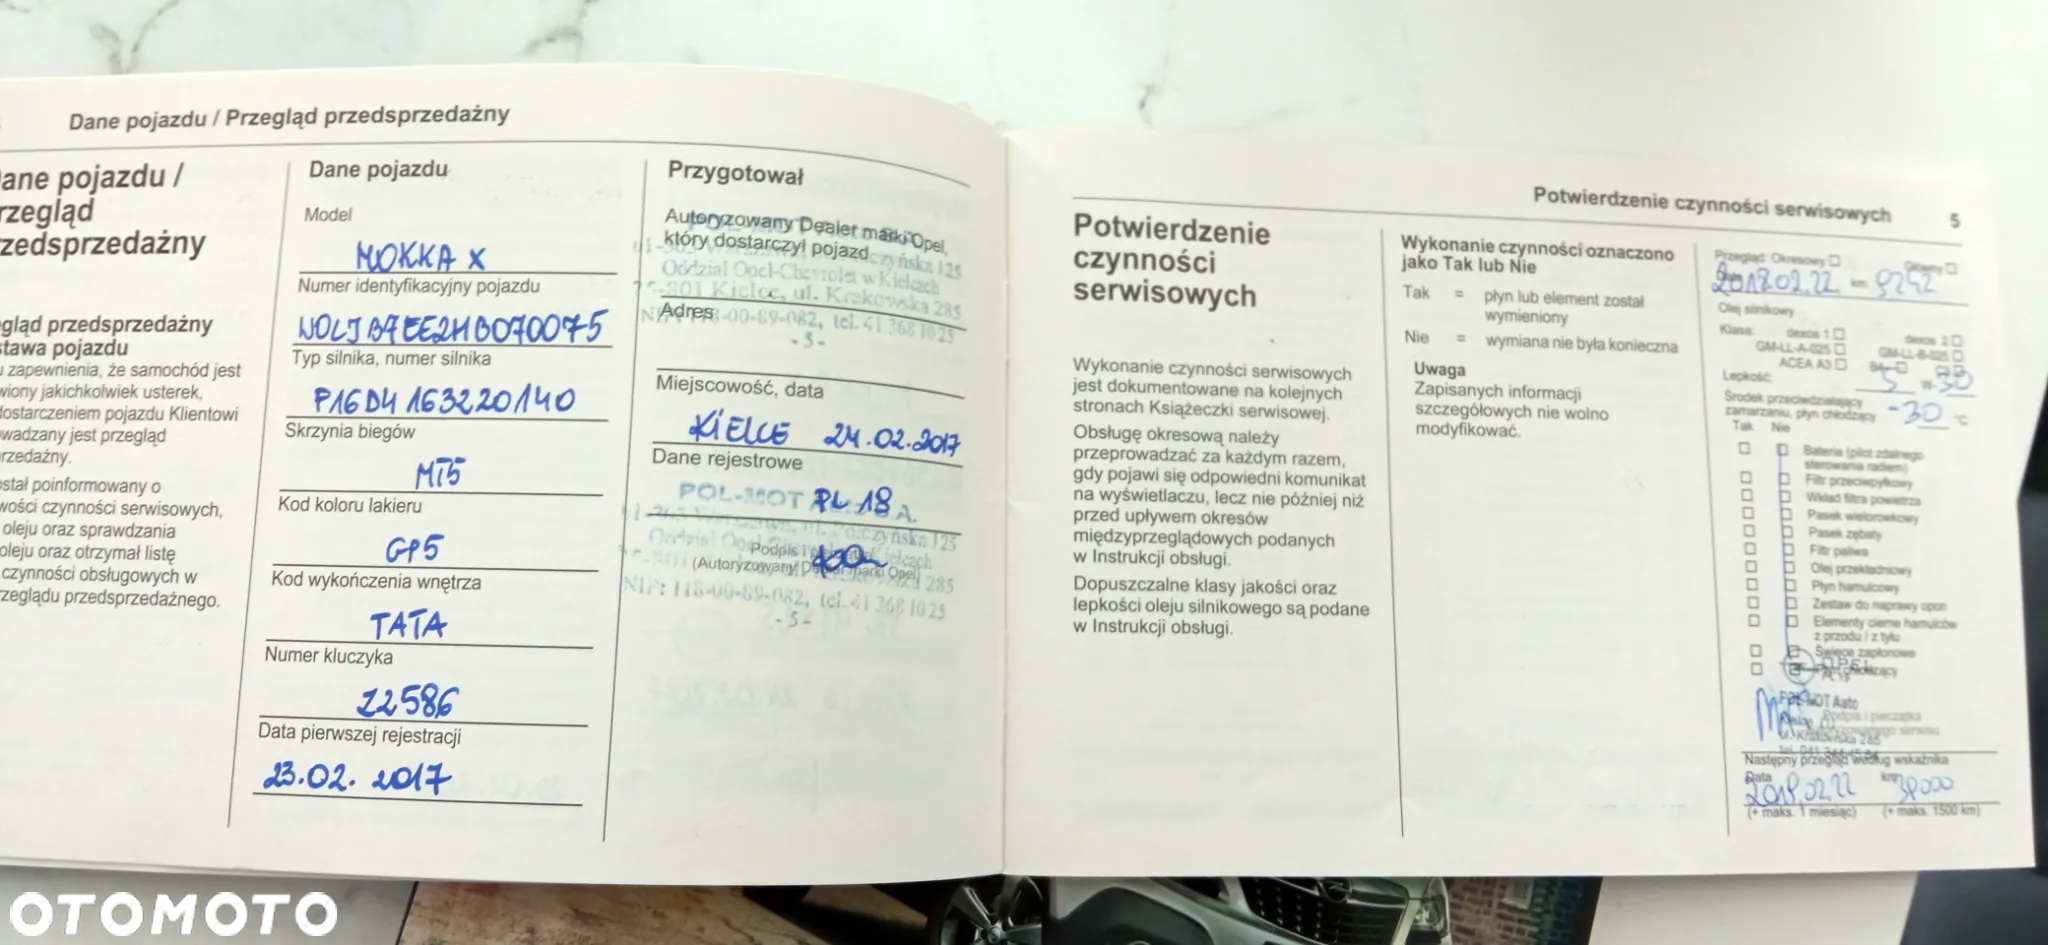 Dane pojazdu / Przegląd przedsprzedażny
ane pojazdu /
rzegląd
zedsprzedażny
gląd przedsprzedażny
stawa pojazdu
u zapewnienia, że samochód jest
wiony jakichkolwiek usterek,
dostarczeniem pojazdu Klientowi
wadzany jest przegląd
rzedażny.
ostał poinformowany o
wości czynności serwisowych,
oleju oraz sprawdzania
oleju oraz otrzymał listę
czynności obsługowych w
rzeglądu przedsprzedażnego.
Dane pojazdu
Model
MOKKA X
Numer identyfikacyjny pojazdu
W0LJB7EE2HB070075
Typ silnika, numer silnika
P16D4 163220140
Skrzynia biegów
MT5
Kod koloru lakieru
GP5
Kod wykończenia wnętrza
TATA
Numer kluczyka
Z2586
Data pierwszej rejestracji
23.02.2017
Przygotował
Autoryzowany Dealer marki Opel,
który dostarczył pojazd
Oddział Opel-Chevrolet w Kielcach
25-801 Kielce, ul. Krakowska 285
NIP: 118-00-89-082, tel. 41 368 10 25
- 5 -
Adres
Miejscowość, data
KIELCE 24.02.2017
Dane rejestrowe
POL-MOT PL 18 S.A.
Podpis i
(Autoryzowany Dealer marki Opel)
NIP: 118-00-89-082, tel. 41 368 10 25
- 5 -
Potwierdzenie czynności serwisowych 5
Potwierdzenie
czynności
serwisowych
Wykonanie czynności serwisowych
jest dokumentowane na kolejnych
stronach Książeczki serwisowej.
Obsługę okresową należy
przeprowadzać za każdym razem,
gdy pojawi się odpowiedni komunikat
na wyświetlaczu, lecz nie później niż
przed upływem okresów
międzyprzeglądowych podanych
w Instrukcji obsługi.
Dopuszczalne klasy jakości oraz
lepkości oleju silnikowego są podane
w Instrukcji obsługi.
Wykonanie czynności oznaczono
jako Tak lub Nie
Tak = płyn lub element został
wymieniony
Nie = wymiana nie była konieczna
Uwaga
Zapisanych informacji
szczegółowych nie wolno
modyfikować.
Przegląd: Okresowy Główny
2018.02.22 km 9242
Olej silnikowy
Klasa: dexos 1 dexos 2
GM-LL-A-025 GM-LL-B-025
ACEA A3
Lepkość: 5 W-30
Środek przeciwdziałający
zamarzaniu, płyn chłodzący -30 °C
Tak Nie
Bateria (pilot zdalnego
sterowania radiem)
Filtr przeciwpyłkowy
Wkład filtra powietrza
Pasek wielorowkowy
Pasek zębaty
Filtr paliwa
Olej przekładniowy
Płyn hamulcowy
Zestaw do naprawy opon
Elementy cierne hamulców
z przodu / z tyłu
Świece zapłonowe
Płyn chłodzący
POL-MOT Auto
Podpis i pieczątka
Następny przegląd według wskaźnika
Data km
2019.02.22 39000
(+ maks. 1 miesiąc) (+ maks. 1500 km)
OTOMOTO